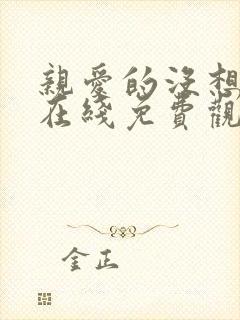 親愛的沒想
在綫免費觀
金正